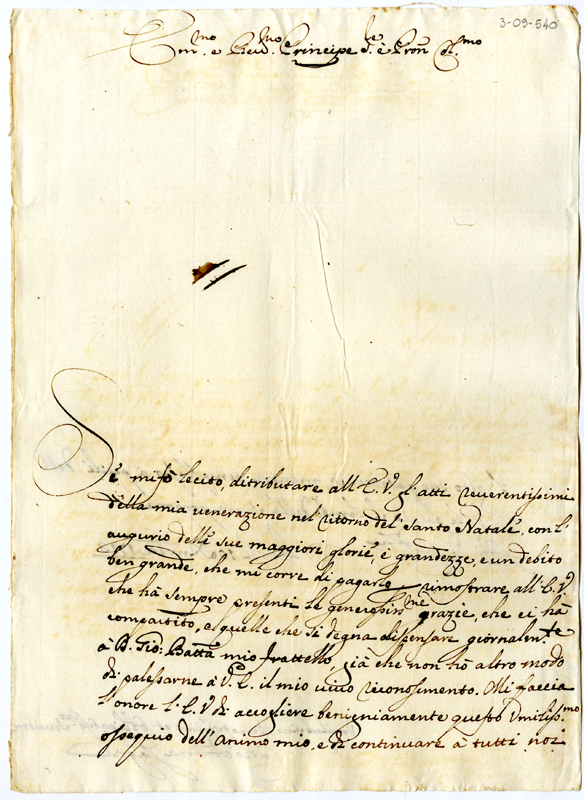 3-09-540
Em.mo e Rev.mo Principe S.re e Pron Col.mo
Se mi fò lecito, di tributare all' E. V. gl'atti reverentissimi
della mia venerazione nel' ritorno del' Santo Natale, con l'
augurio delle sue maggiori glorie, è grandezze, e un debito
ben grande, che mi corre di pagarlo rimostrare all' E. V.
che hà sempre presenti le generosiss.me grazie, che ci hà
compartito, e quelle che si degna dispensare giornalem.te
à D. Gio: Batta mio frattello, già che non hò altro modo
di palessarne à V. E. il mio vivo reconosimento. Mi faccia
l'onore l' E. V. di accogliere benigniamente questo Umiliss.mo
ossequio dell' Animo mio, e di continuare à tutti noi